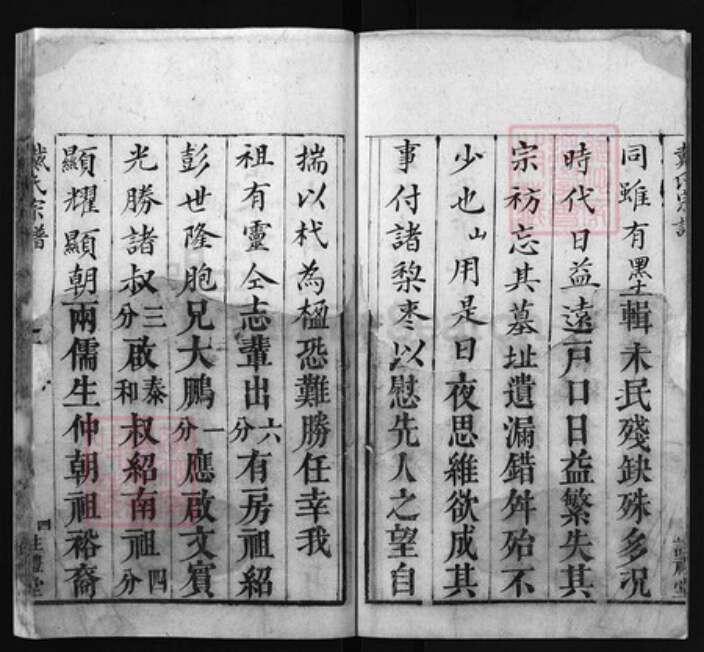 同雖有墨輯未民殘缺殊多況
時代日益遠戶口日益繁失其
宗祊忘其墓址遺漏錯舛殆不
少也用是日夜思維欲成其
事付諸梨棗以慰先人之望自
揣以杙為楹恐難勝任幸我
祖有靈仝志輩出六分有房祖紹
彭世隆胞兄大鵬一分應啟文賓
光勝諸叔三分啟泰和叔紹南祖四分
顯耀顯朝兩儒生仲朝祖裕裔
戴氏宗譜
四